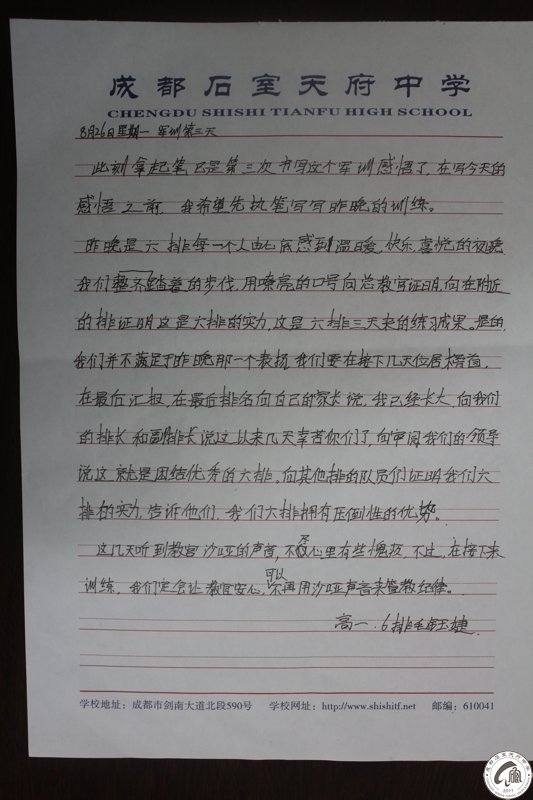 成都石室天府中学
CHENGDU SHISHI TIANFU HIGH SCHOOL
8月26日 星期一 军训第三天
此刻拿起笔,已是第三次书写这个军训感悟了,在写今天的
感悟之前,我希望先执笔写写昨晚的训练。
昨晚是六排每一个人由心底感到温暖,快乐,喜悦的夜晚
我们踏着的步伐,用嘹亮的口号向总教官证明,向在附近
的排证明这是六排的实力,这是六排三天来的练习成果。是的,
我们并不满足于昨晚那一个表扬,我们要在接下几天位居榜首,
在最后汇报,在最后排名向自己的家长说,我已经长大,向我们
的排长和副排长说这以来几天幸苦你们了,向审阅我们的领导
说这就是团结优秀的六排,向其他排的队员们证明我们六
排的实力,告诉他们,我们六排拥有压倒性的优势。
这几天听到教官沙哑的声音,不心里有些愧疚,不过,在接下来
训练,我们定会让教官安心,可以不再用沙哑声音来管教纪律。
高一.6排
学校地址:成都市剑南大道北段590号 学校网址:http://www.shishitf.net 邮编:610041
2011